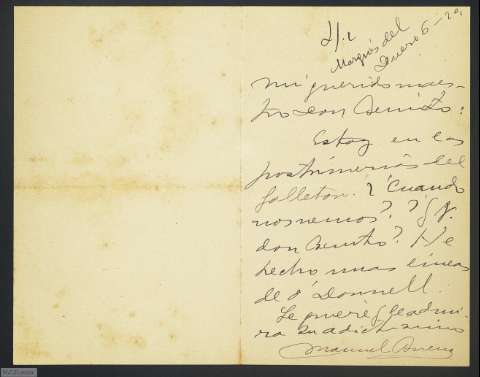 Marqués del
Enero 6
Mi querido maes-
tro don Benito:
Estoy en las
postrimerías del
folleton. ? Cuando
nos vemos? ? Y V.
don Benito? He
hecho unas líneas
de O'Donnell.
Le quiere y le admi-
ra su adictísimo
Manuel Bueno